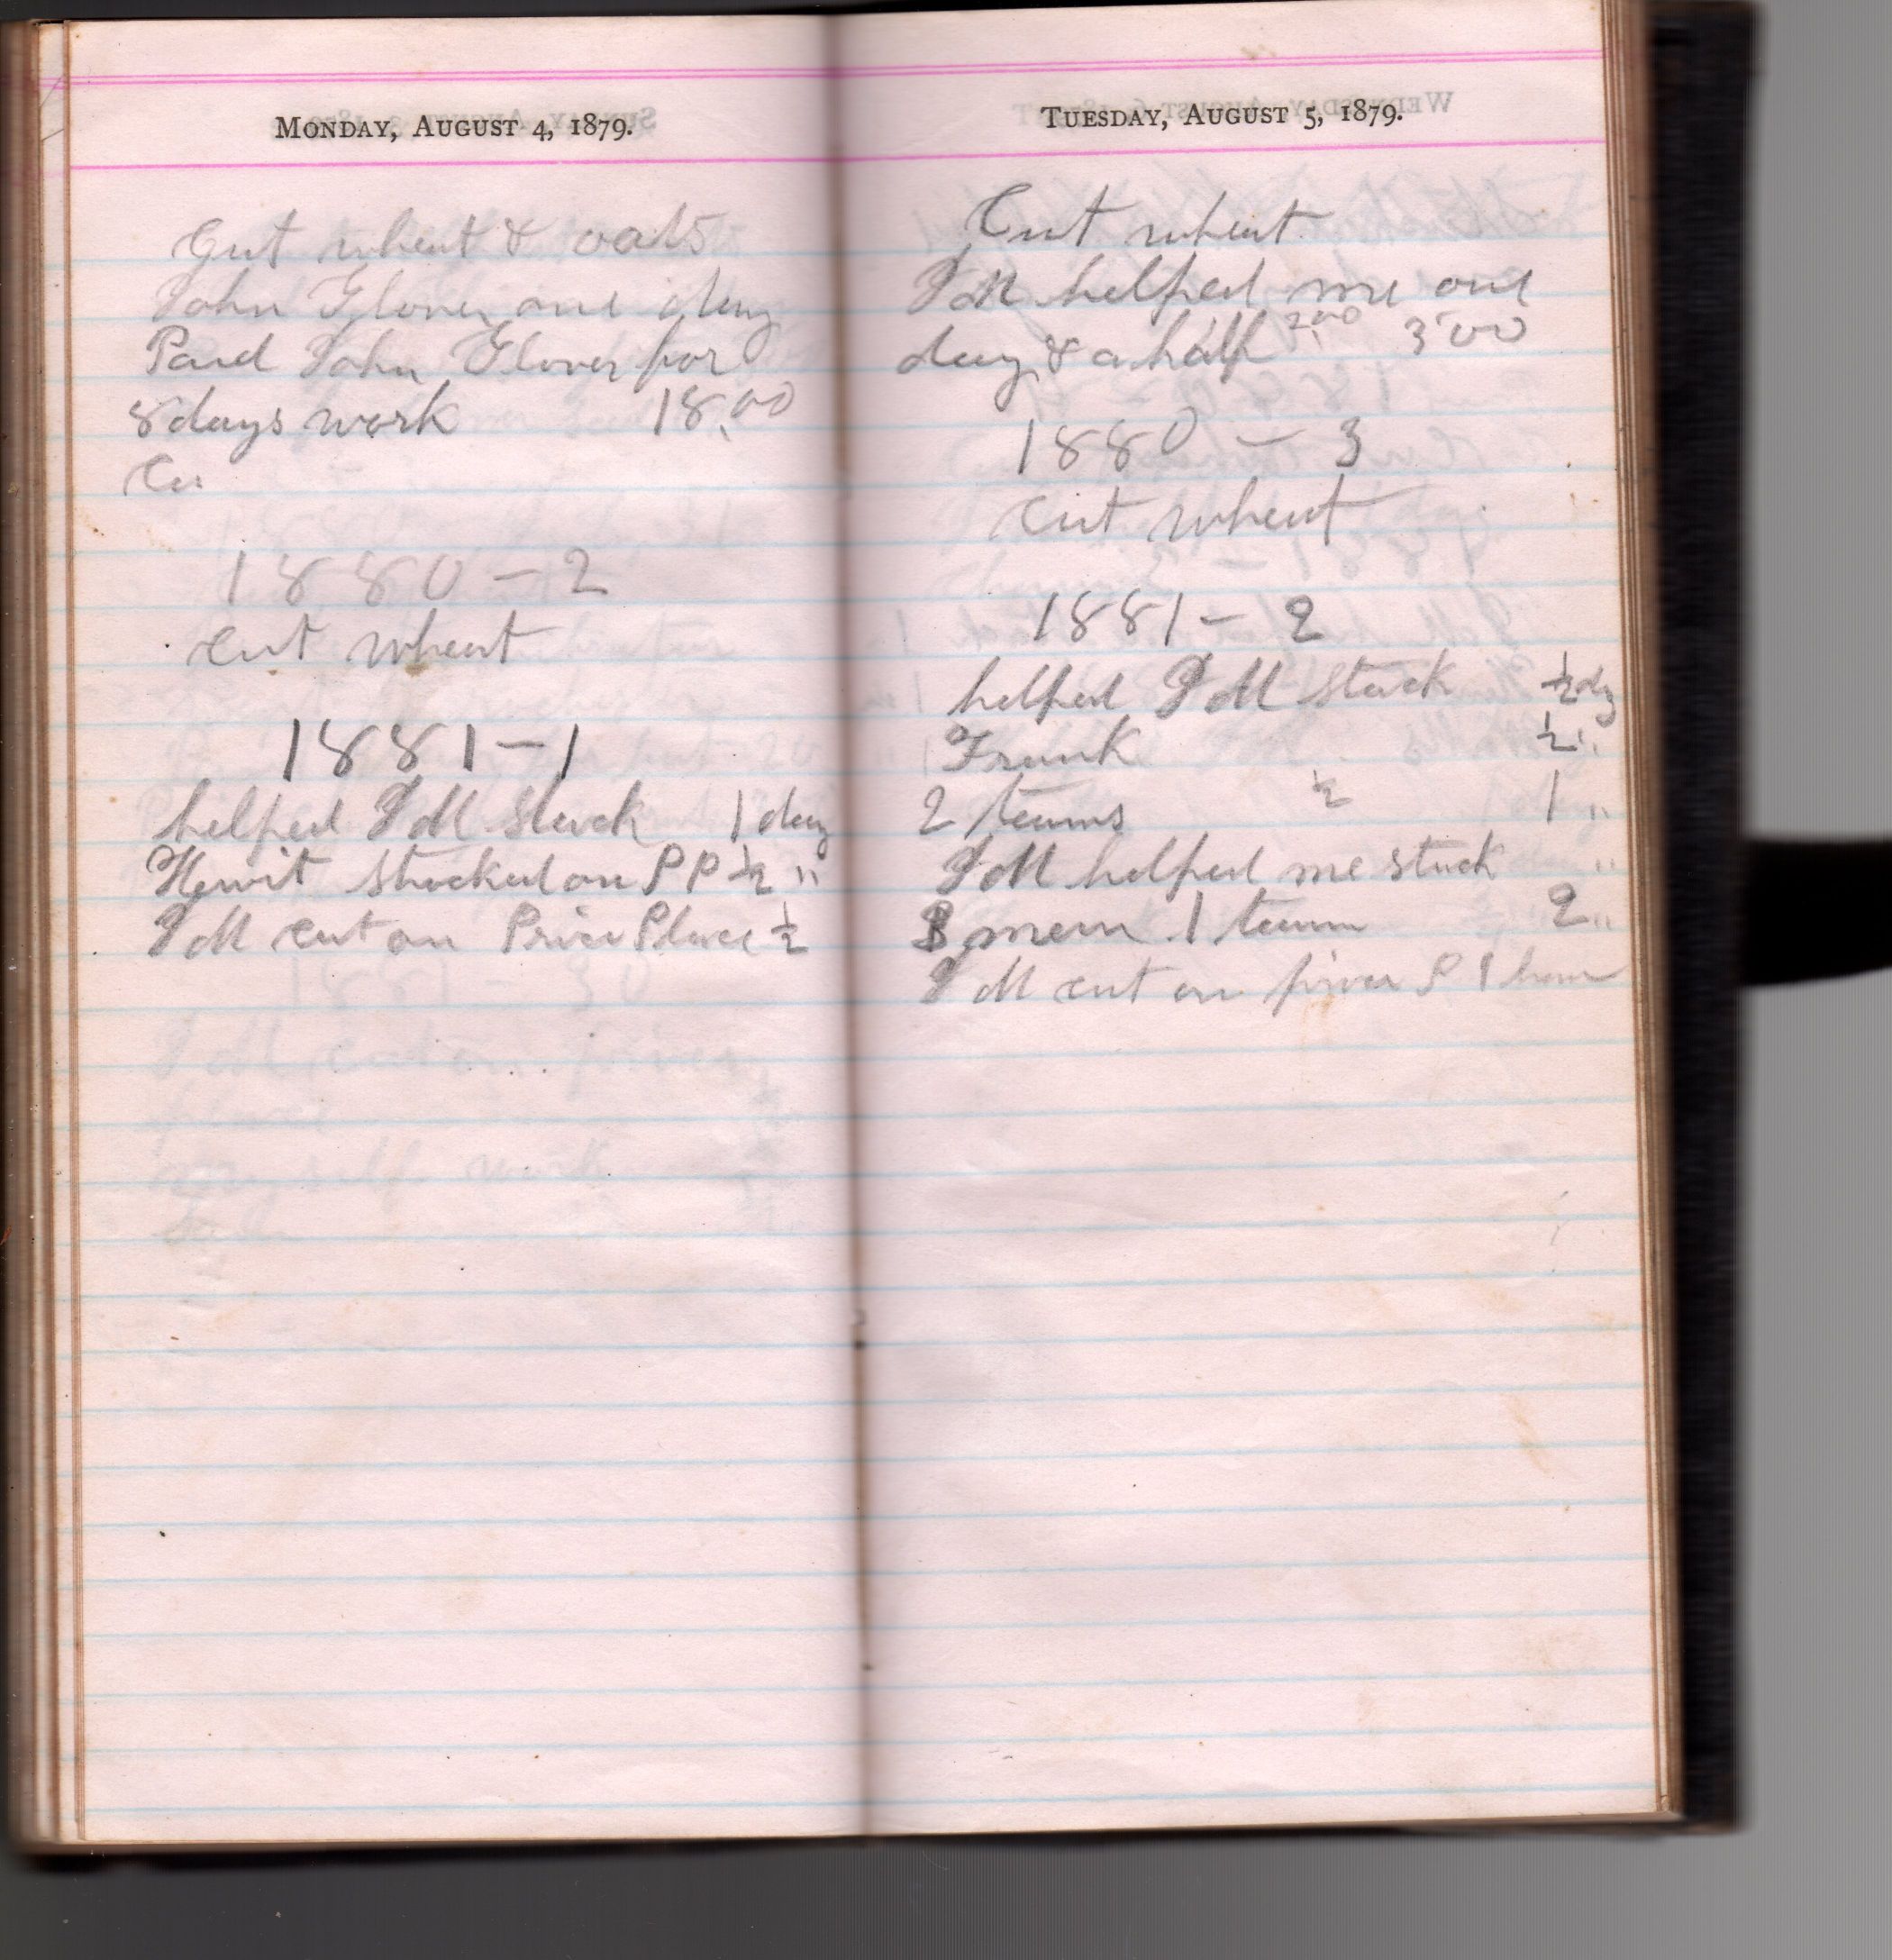 MONDAY, AUGUST 4, 1879.
Cut wheat & oats
John Glover one day
Paid John Glover for
8 days work 18.00
Cu
1880 - 2
cut wheat
1881 - 1
helped J M Stack 1 day
Hewit shocked on P P ½ "
J M cut on Price Place ½
TUESDAY, AUGUST 5, 1879.
Cut wheat
J M helped me one
day & a half 2.00 3.00
1880 - 3
cut wheat
1881 - 2
helped J M Stack ½ dy
Frank ½ "
2 teams ½ 1 "
J M helped me stack "
3 mem 1 team 2 "
J M cut on price P 1 hour